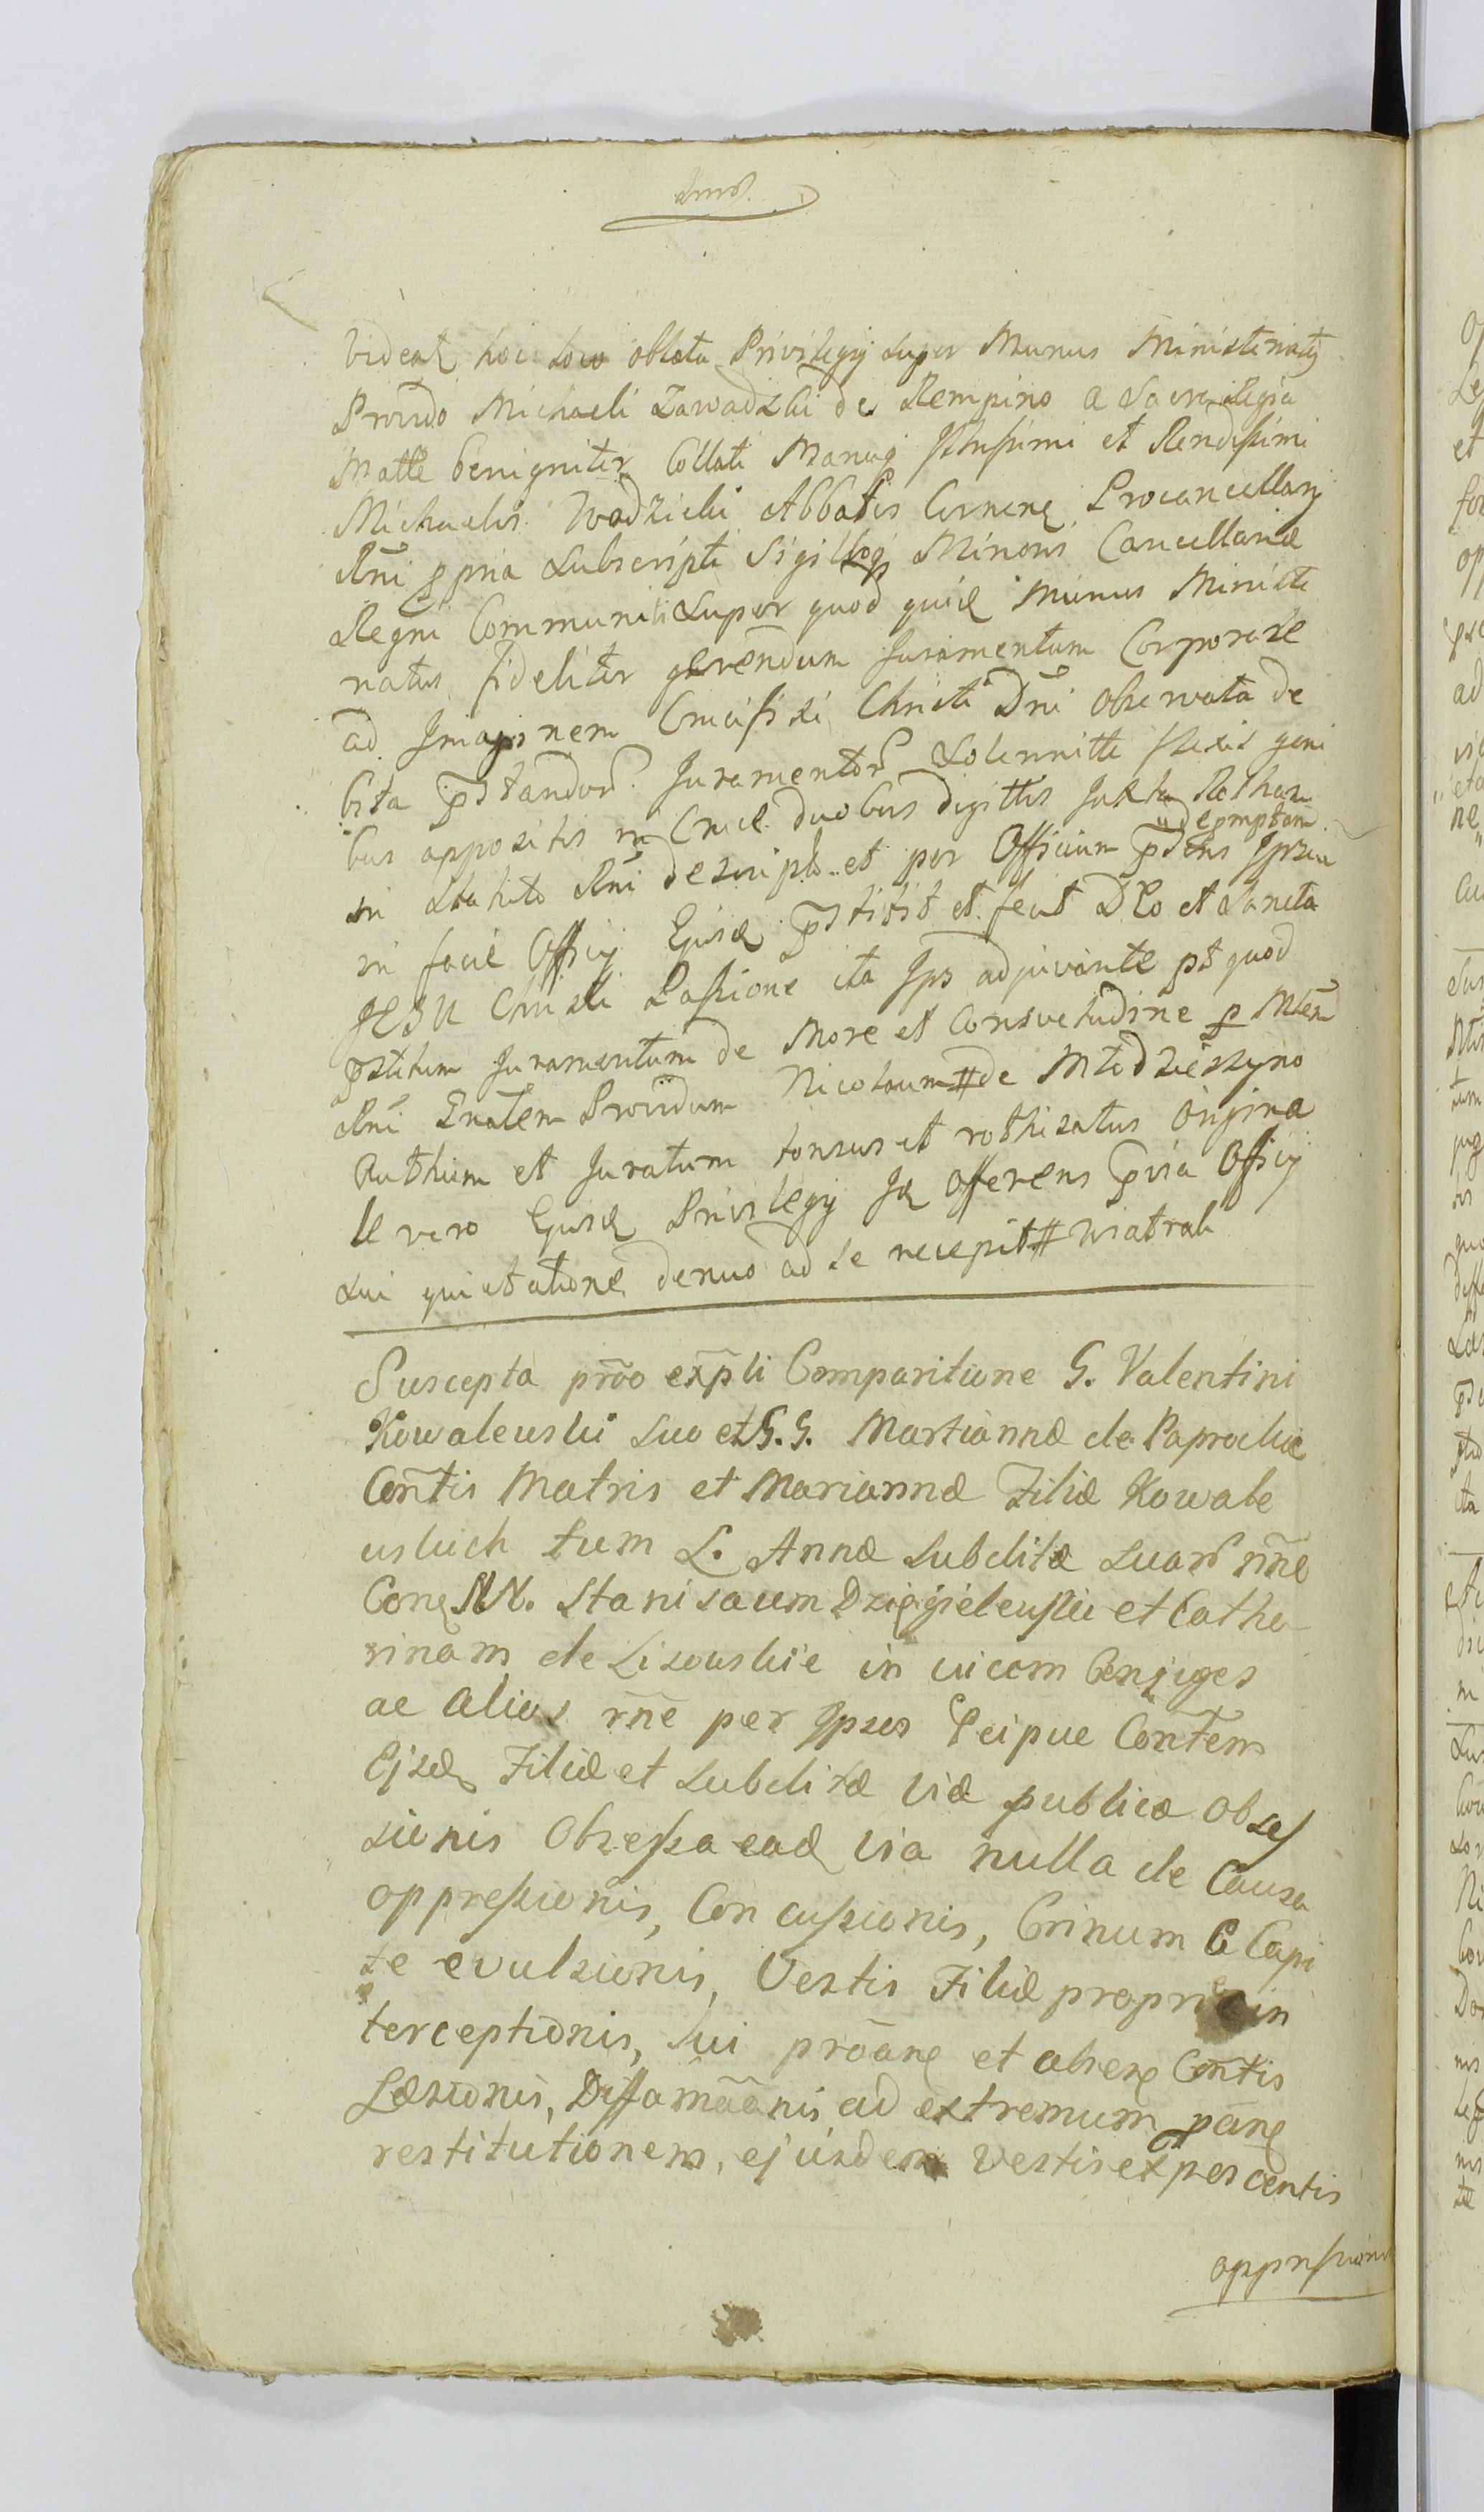 videat hoc loco oblata Privilegij super Munus Ministeriatq
Provido Michaeli Zawadzki de Rempino a Sacra Regia
Matte benigniter Collati Manuq Illussimi et Rendissimi
Michaelis Wodzicki Abbatis Procancellarij
Rni ppria subscripti Sigilloq Minoris Cancellariæ
Regni Communiti super quod quid munus Ministe
riatus fideliter gerendum Juramentum Corporale
ad Imaginem Crucifixi Christi Dni observata de
bita pstandor Juramentor Solennitte flexis geni
bus appositis in Cruce duobus digittis Juxta Rotham
in Statuto Rni descripto et per Officium pdens Ipsi
depmptam
in facie Officij Ejusd pstitit et fecit DEo et Sancta
JESU Christi Passione ita Ips adjuvante pt quod
pstitum Juramentum de More et Consvetudine p Mtem
Rni Gnalem Providum Nicolaum # de Młodzieszyno
Authum et Juratum tonsus et rothisatus Origina
le vero Ejusd Privilegij Id Offerens psia Officij
sui quietatione denuo ad se recepit # Wiatrak
Suscepta prõo expli Comparitione G. Valentini
Kowalewski suo et G.G. Martiannæ de Paprockie
Contis Matris et Mariannæ Filiæ Kowale
wskich tum L. Annæ Subditæ suar nne
Conq NN. Stanisaum Dzięgielewski et Catha
rinam de Lisowskie in vicem Conjuges
ac alios rne per Ipsos Pcipue Contem
Ejsd Filiæ et Subditæ viæ publicæ obses
sionis Obsessa ead via nulla de Causa
oppressionis, Concussionis, Crinum e Capi
te evulsionis, Vestis Filiæ propriæ in
terceptionis, Sui prõanę et absenę Contis
Læsionis, Diffamãanis ad extremum pãnę
restitutionem, ejusdem vestis expescentis
oppressionis